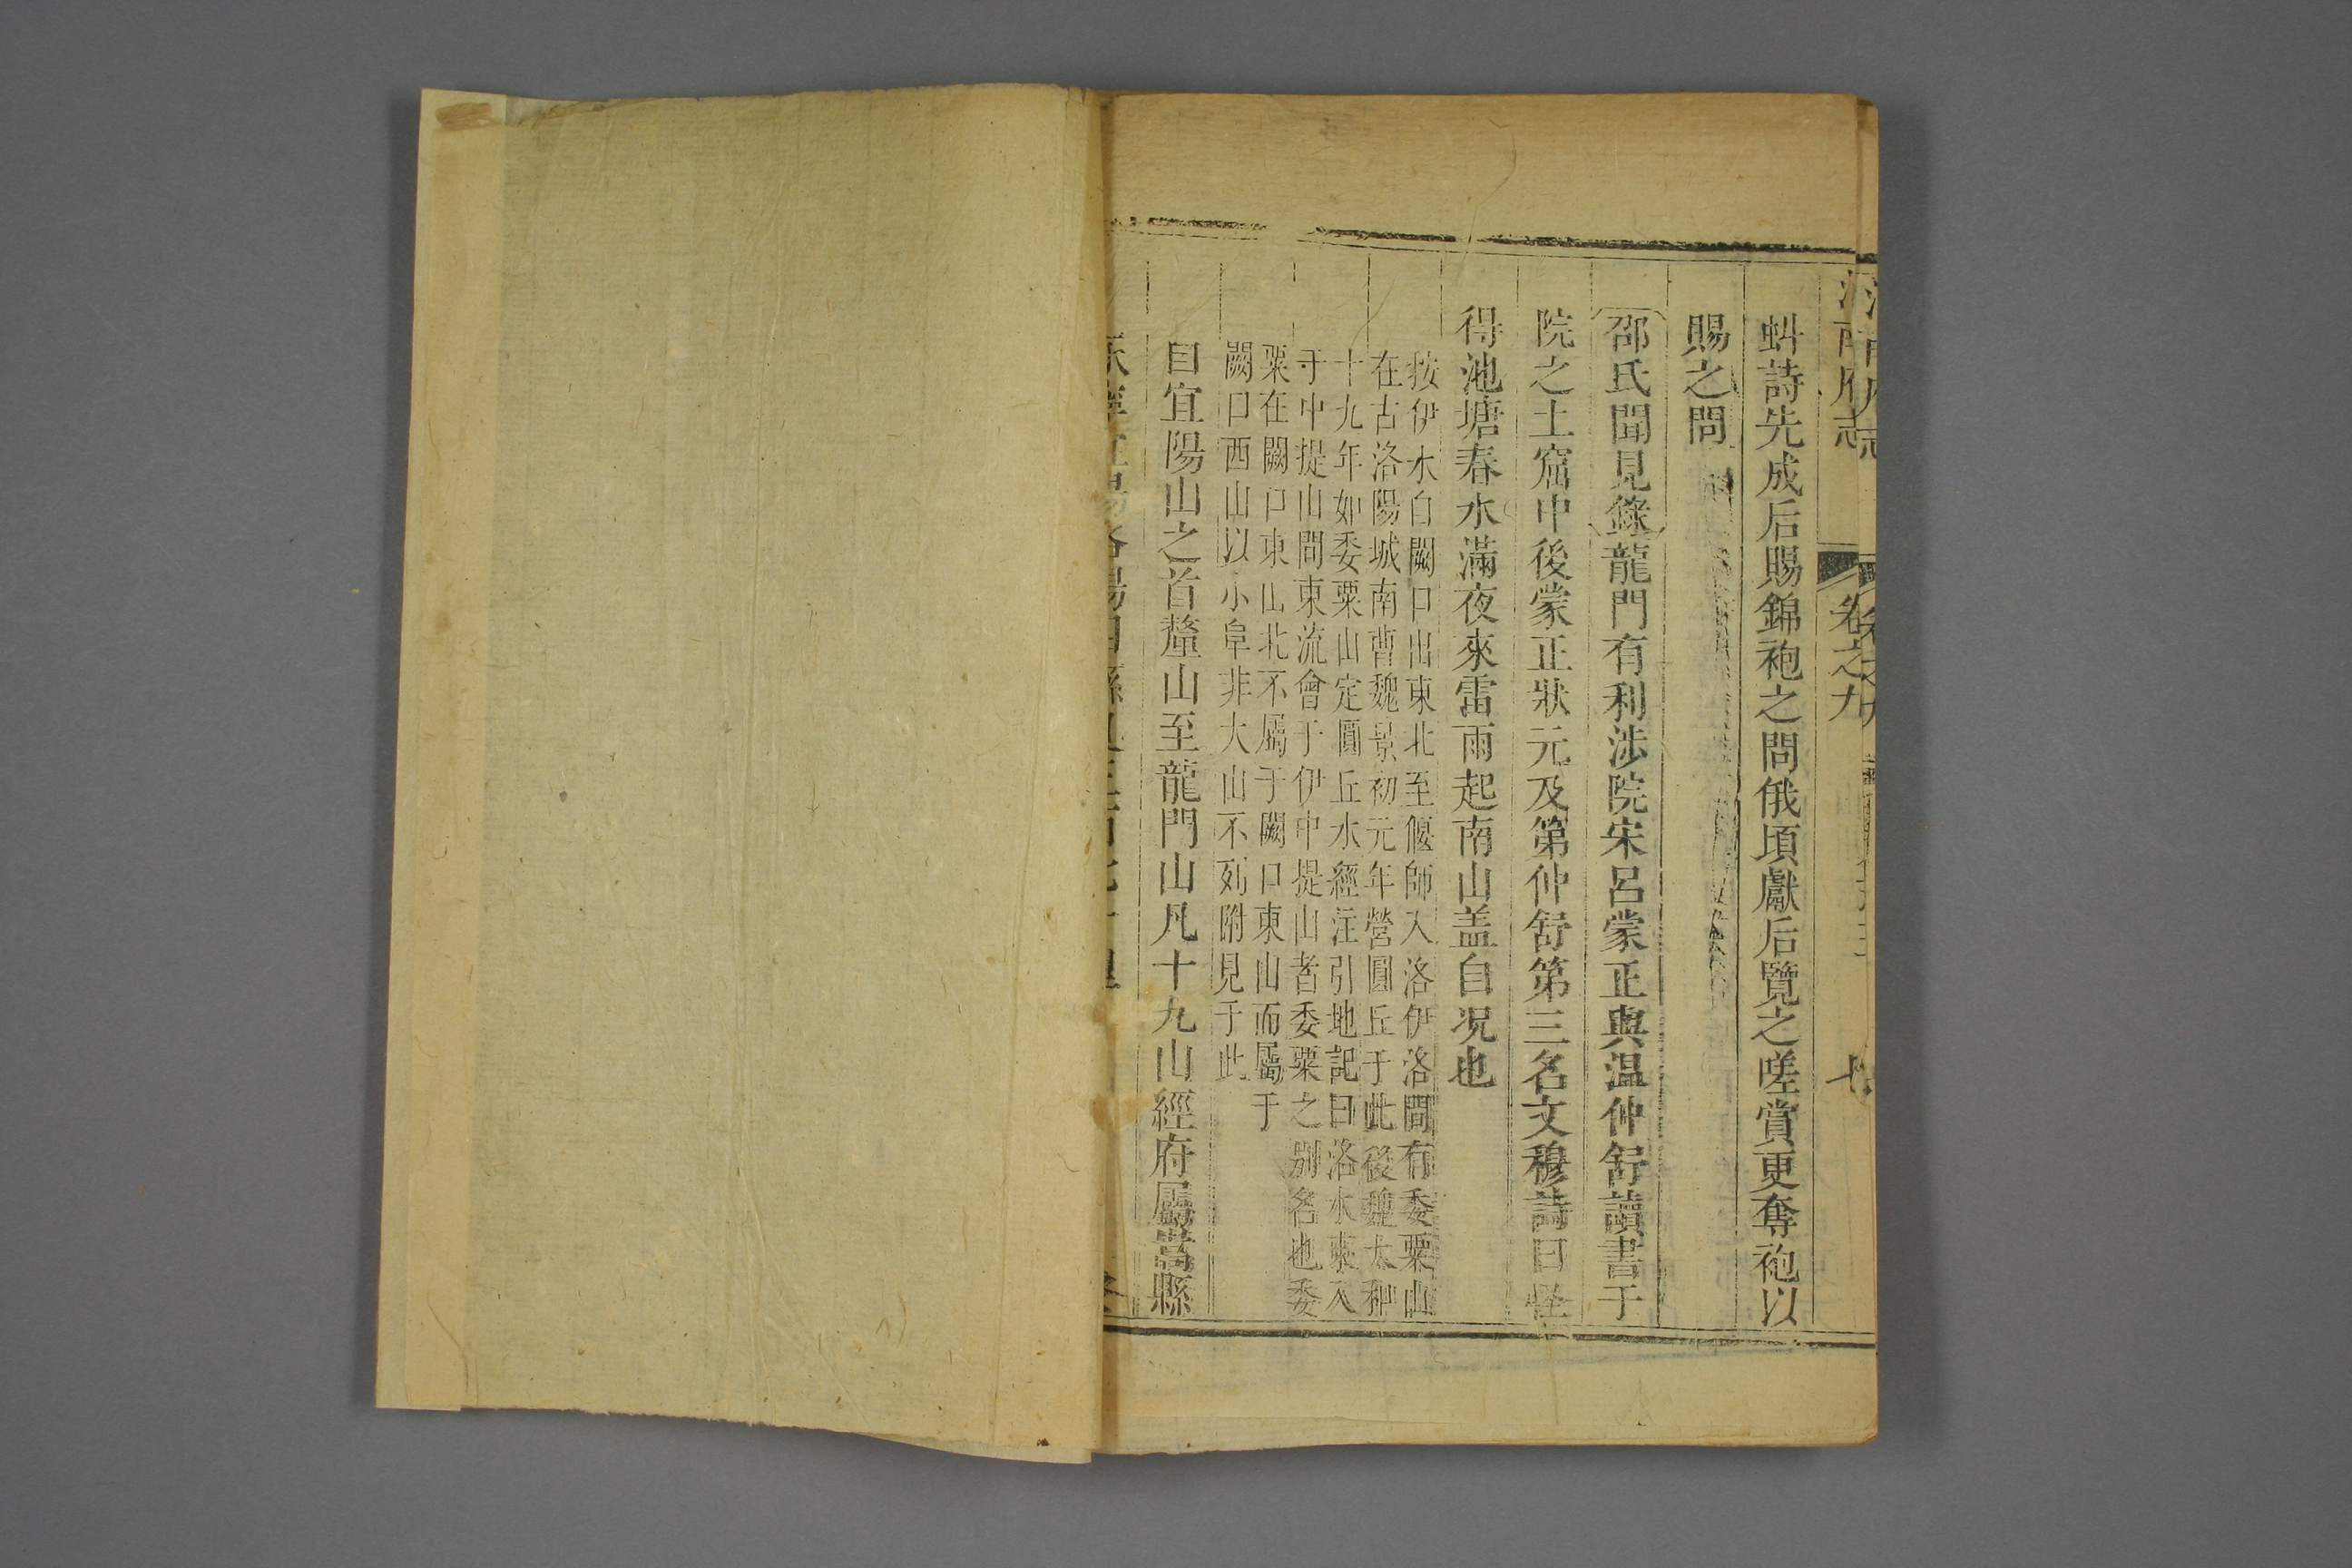 河南府志 卷之九 七
虯詩先成后賜錦袍之問俄頃獻后覽之嗟賞更奪袍以
賜之問
邵氏聞見錄龍門有利涉院宋呂蒙正與温仲舒讀書于
院之土窟中後蒙正狀元及第仲舒第三名文穆詩曰怪
得池塘春水滿夜來雷雨起南山盖自况也
按伊水自闕口出東北至偃師入洛伊洛間有委粟山
在古洛陽城南曹魏景初元年營圓丘于此後魏太和
十九年如委粟山定圓丘水經注引地記曰洛水東入
于中提山間東流會于伊中提山者委粟之别名也委
粟在闕口東山北不屬于闕口東山而屬于
闕口西山以小阜非大山不列附見于此
自宜陽山之首釐山至龍門山凡十九山經府屬嵩縣